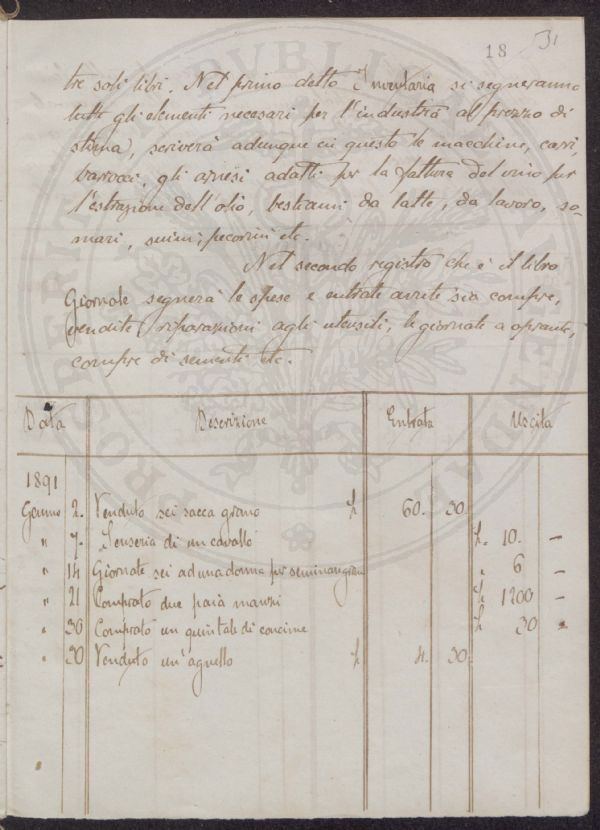 18 31
tre soli libri. Nel primo detto Inventaria si segneranno
tutti gli elementi necesari per l'industria al prezzo di
stima, scriverà adunque in questo le macchine, carri,
barocci, gli arnesi adatti per la fattura del vino per
l'estrazione dell'olio, bestiami da latte, da lavoro, so-
mari, suini pecorini etc.
Nel secondo registro che è il libro
Giornale segnerà le spese e entrate avute sia compre,
vendite, riparazioni agli utensili, le giornate a oprante,
compre di sementi etc.
Data Descrizione Entrata Uscita
1891
Gennno 2. Venduto sei sacca grano £ 60. 30.
" 7. Senseria di un cavallo £. 10. -
" 14 Giornate sei ad una donna per seminar grano " 6 -
" 21 Comprato due paia manzi £ 1200 -
" 30 Comprato un quintale di concime £ 30 -
" 30 Venduto un'agnello £ 4. 30.
PVBLICAE
PROSPERITATI